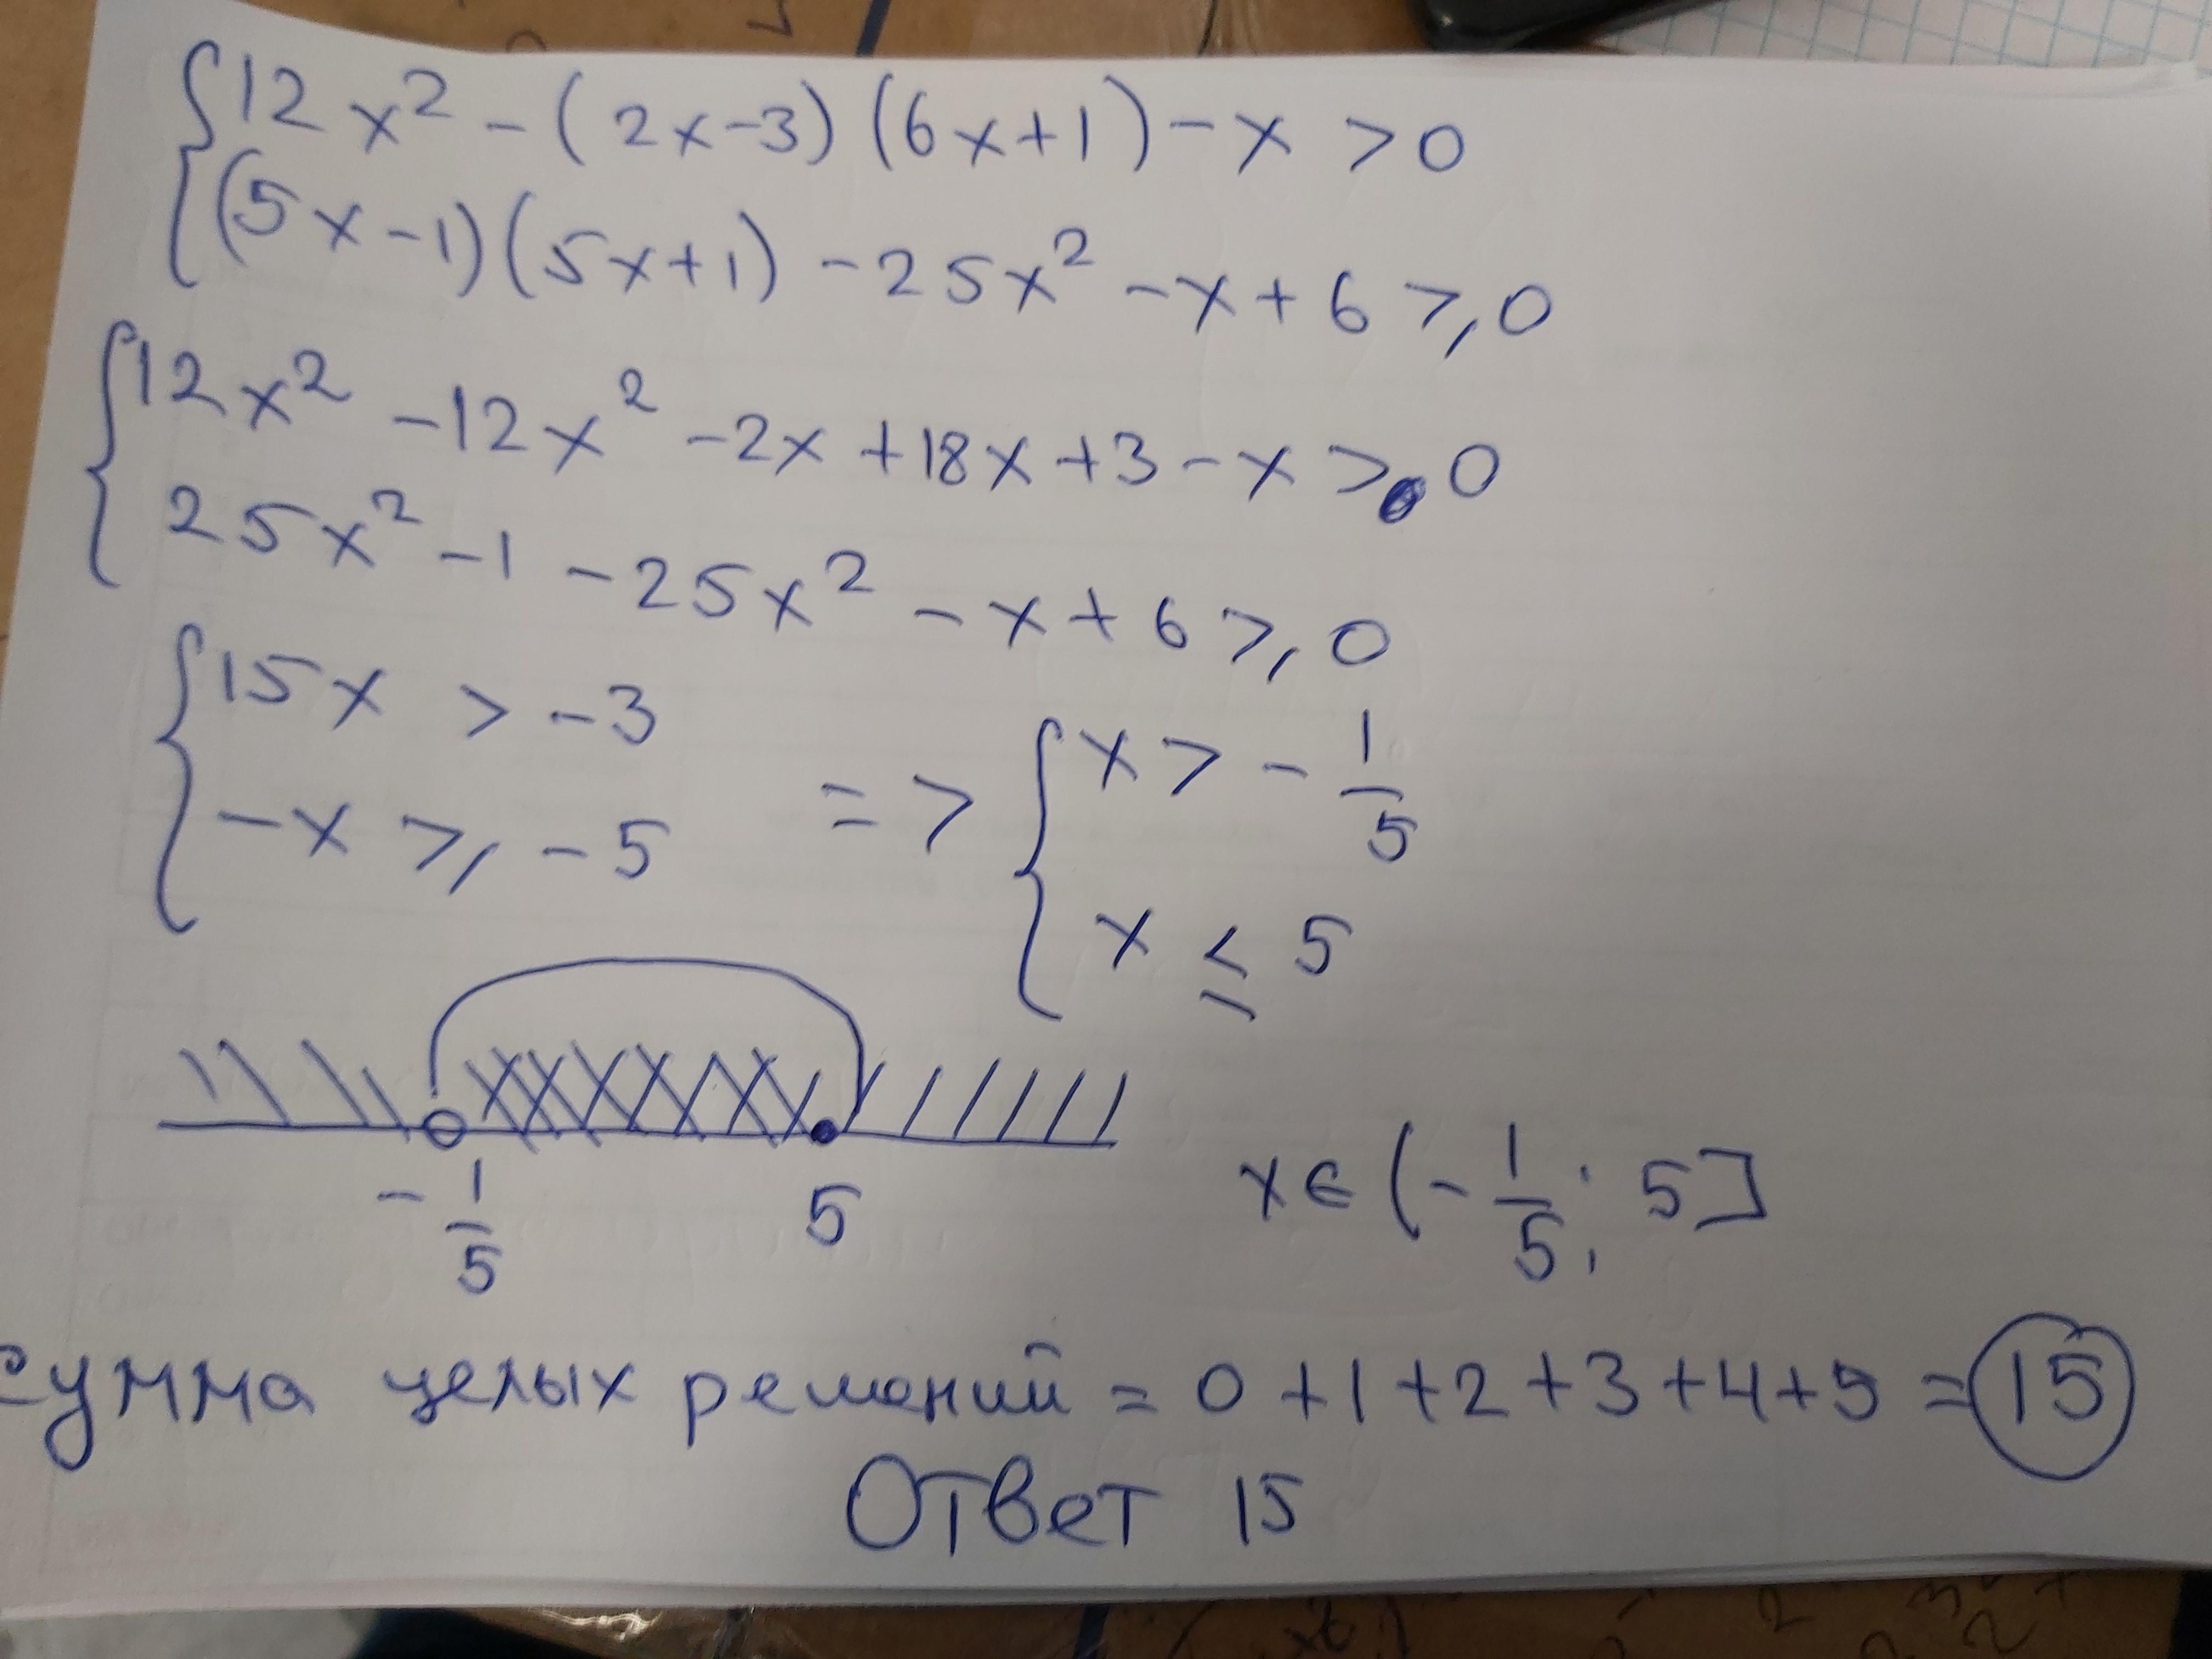 {12x² - (2x-3)(6x+1) - x > 0
(5x-1)(5x+1) - 25x² - x + 6 ⩾ 0
{12x² - 12x² - 2x + 18x + 3 - x > 0
25x² - 1 - 25x² - x + 6 ⩾ 0
{15x > -3
-x ⩾ -5
=> {x > - 1/5
x ≤ 5
- 1/5 5
x ∈ (- 1/5; 5]
Сумма целых решений = 0 + 1 + 2 + 3 + 4 + 5 = 15
Ответ 15